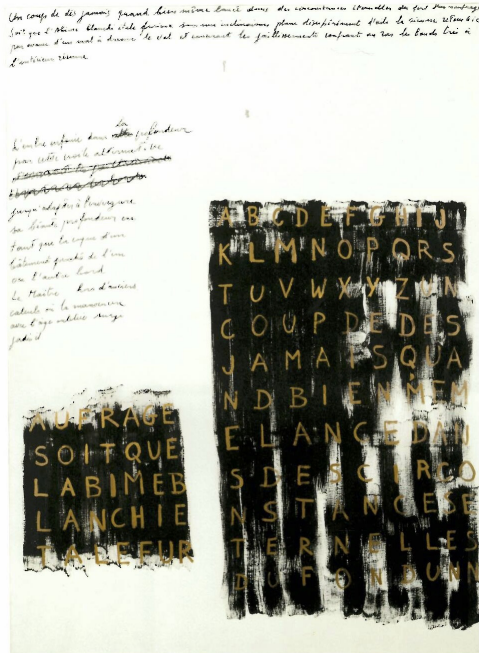 Un coup de dés jamais quand bien même lancé dans des circonstances éternelles du fond d'un naufrage
Soit que l'Abîme blanchi étale furieux sous une inclinaison plane désespérément d'aile la sienne
par avance d'un mal à dresser le vol et couvrant les jaillissements coupant au ras les bonds très à
l'intérieur résume
L'ombre enfouie dans la profondeur
par cette voile alternative
jusqu'adapter à l'envergure
sa béante profondeur en
tant que la coque d'un
bâtiment penché de l'un
ou l'autre bord
Le Maître hors d'anciens
calculs où la manoeuvre
avec l'âge oubliée surgi
jadis
ABCDEFGHIJ
KLMNOPQRS
TUVWXYZUN
COUPDEDES
JAMAISQUA
NDBIENMEM
ELANCEDAN
SDESCIRCO
NSTANCESE
TERNELLES
DUFONDUNN
AUFRAGE
SOITQUE
LABIMEB
LANCHIE
TALEFUR